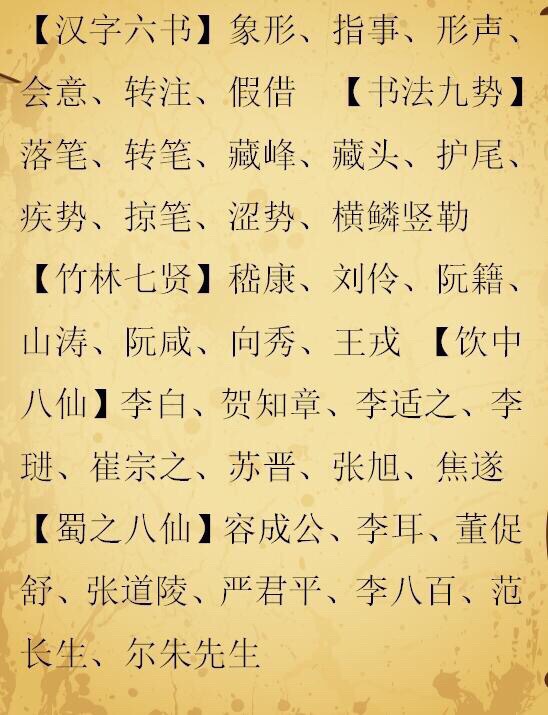 【汉字六书】象形、指事、形声、
会意、转注、假借 【书法九势】
落笔、转笔、藏峰、藏头、护尾、
疾势、掠笔、涩势、横鳞竖勒
【竹林七贤】嵇康、刘伶、阮籍、
山涛、阮咸、向秀、王戎 【饮中
八仙】李白、贺知章、李适之、李
琎、崔宗之、苏晋、张旭、焦遂
【蜀之八仙】容成公、李耳、董促
舒、张道陵、严君平、李八百、范
长生、尔朱先生